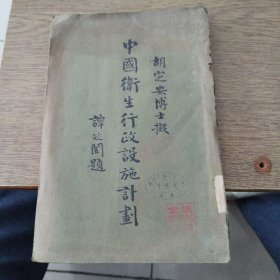 胡定安博士擬
中國衛生行政設施計劃
譚延闓題